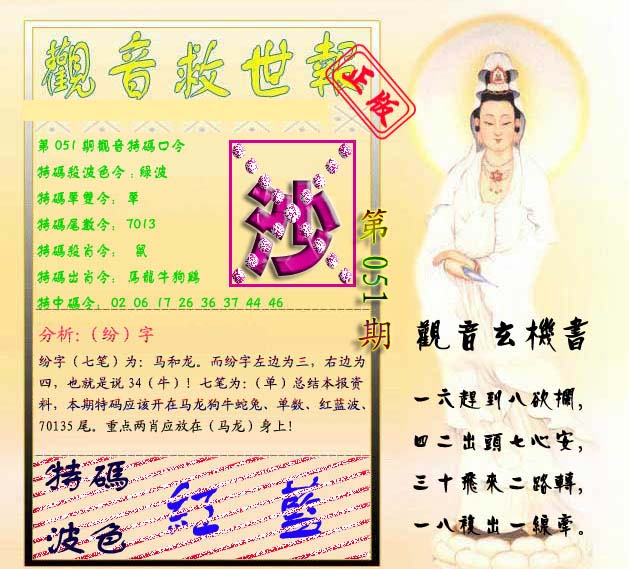 觀音救世報
正版
第051期觀音特碼口令
特碼殺波色令:綠波
特碼單雙令: 單
特碼尾數令: 7013
特碼殺肖令: 鼠
特碼出肖令: 馬龍牛狗鷄
特中碼令: 02 06 17 26 36 37 44 46
沙
第051期
分析:（纷）字
纷字（七笔）为：马和龙。而纷字左边为三，右边为
四，也就是说 34（牛）！七笔为：（单）总结本报资
料，本期特码应该开在马龙狗牛蛇兔、单数、红蓝波、
70135 尾。重点两肖应放在（马龙）身上!
特碼
波色
紅 藍
觀音玄機書
一六趕到八欲攔,
四二出頭七心安,
三十飛來二路轉,
一八複出一線牽。